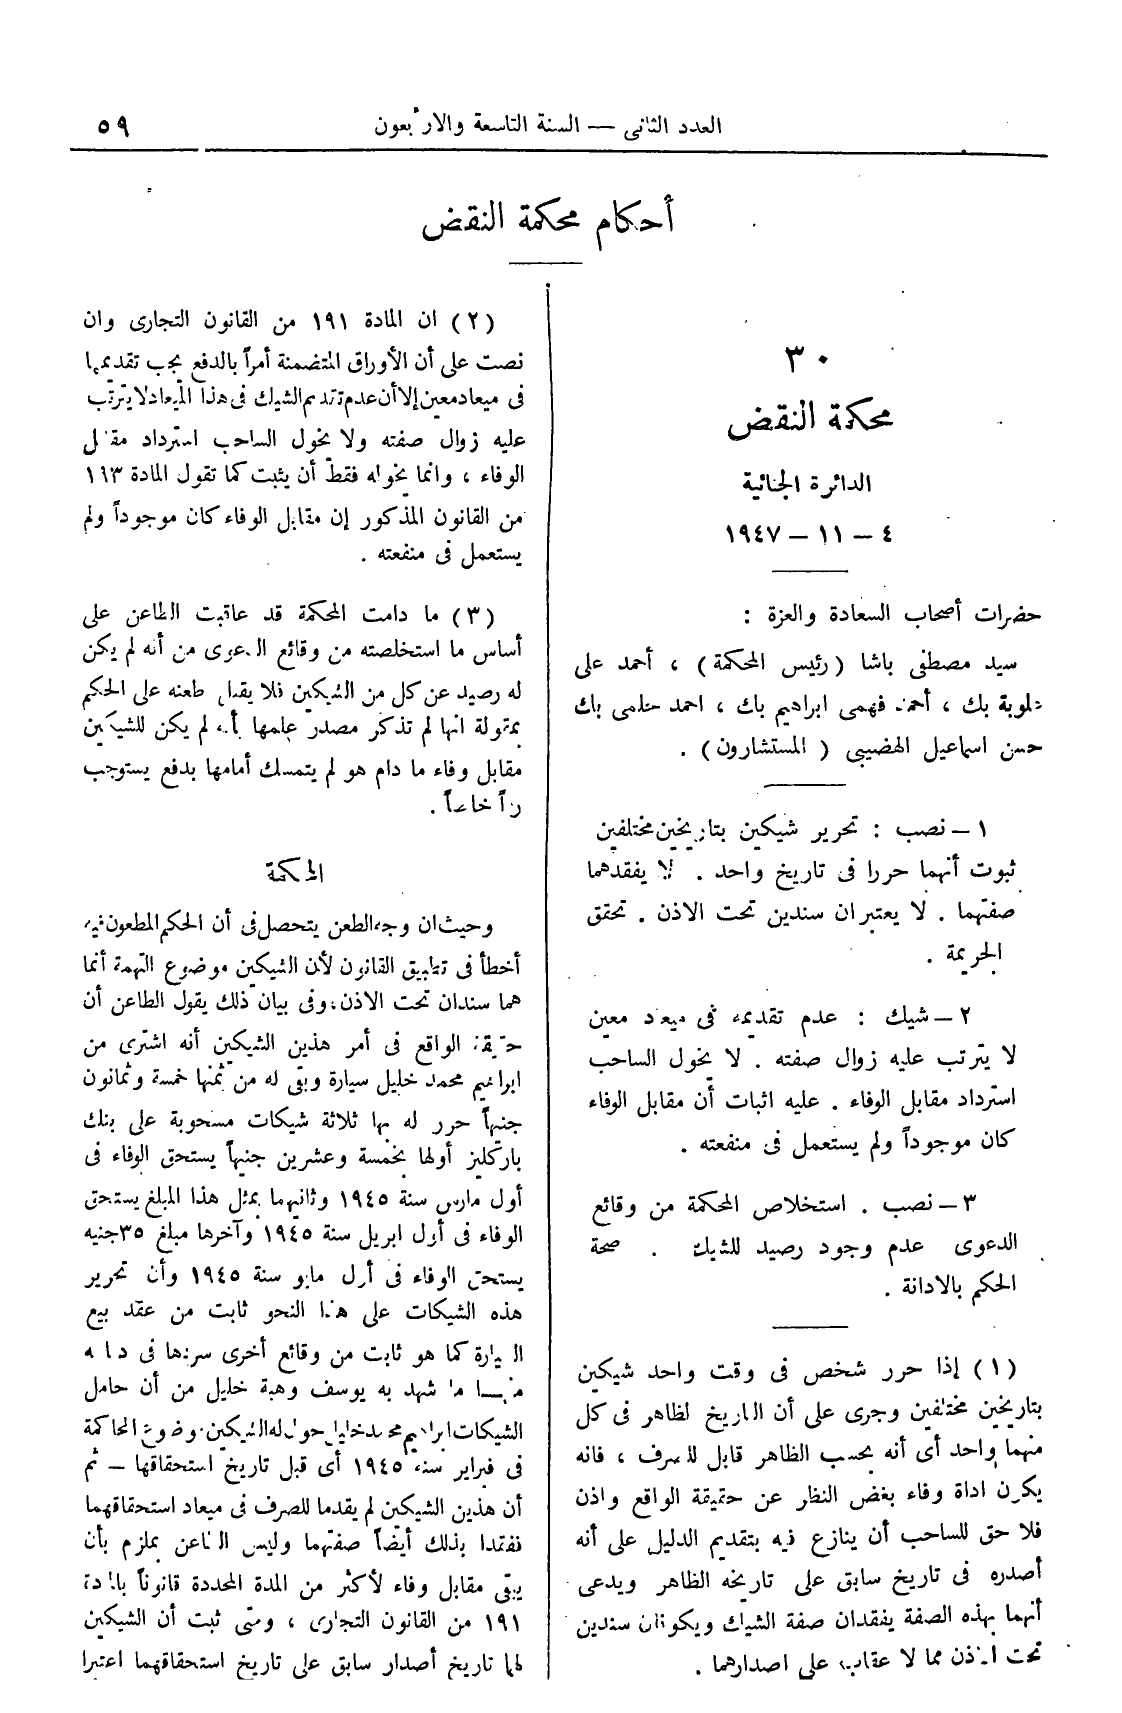 العدد الثانى — السنة التاسعة والاربعون
٥٩
أحكام محكمة النقض
٣٠
محكمة النقض
الدائرة الجنائية
٤ – ١١ – ١٩٤٧
حضرات أصحاب السعادة والعزة :
سيد مصطفى باشا (رئيس المحكمة) ، أحمد على
علوبة بك ، أحمد فهمى ابراهيم بك ، احمد حلمى بك
حسن اسماعيل الهضيبى ( المستشارون) .
١ – نصب : تحرير شيكين بتاريخين مختلفين
ثبوت أنهما حررا فى تاريخ واحد . لا يفقدهما
صفتهما . لا يعتبران سندين تحت الاذن . تحقق
الجريمة .
٢ – شيك : عدم تقديمه فى ميعاد معين
لا يترتب عليه زوال صفته . لا يخول الساحب
استرداد مقابل الوفاء . عليه اثبات أن مقابل الوفاء
كان موجوداً ولم يستعمل فى منفعته .
٣ – نصب . استخلاص المحكمة من وقائع
الدعوى عدم وجود رصيد للشيك . صحة
الحكم بالادانة .
(١) إذا حرر شخص فى وقت واحد شيكين
بتاريخين مختلفين وجرى على أن التاريخ الظاهر فى كل
منهما واحد أى أنه بحسب الظاهر قابل للصرف ، فانه
يكون اداة وفاء بغض النظر عن حقيقة الواقع واذن
فلا حق للساحب أن ينازع فيه بتقديم الدليل على أنه
أصدره فى تاريخ سابق على تاريخه الظاهر ويدعى
أنهما بهذه الصفة يفقدان صفة الشيك ويكونان سندين
تحت الاذن مما لا عقاب على اصدارهما .
(٢) ان المادة ١٩١ من القانون التجارى وان
نصت على أن الأوراق المتضمنة أمراً بالدفع يجب تقديمها
فى ميعاد معين إلا أن عدم تقديم الشيك فى هذا الميعاد لا يترتب
عليه زوال صفته ولا يخول الساحب استرداد مقابل
الوفاء ، وانما يخوله فقط أن يثبت كما تقول المادة ١٦٣
من القانون المذكور إن مقابل الوفاء كان موجوداً ولم
يستعمل فى منفعته .
(٣) ما دامت المحكمة قد عاقبت الطاعن على
أساس ما استخلصته من وقائع الدعوى من أنه لم يكن
له رصيد عن كل من الشيكين فلا يقبل طعنه على الحكم
بمقولة انها لم تذكر مصدر علمها أنه لم يكن للشيكين
مقابل وفاء ما دام هو لم يتمسك أمامها بدفع يستوجب
رداً خاصاً .
المحكمة
وحيث ان وجه الطعن يتحصل فى أن الحكم المطعون فيه
أخطأ فى تطبيق القانون لأن الشيكين موضوع التهمة أنما
هما سندان تحت الاذن . وفى بيان ذلك يقول الطاعن أن
حقيقة الواقع فى أمر هذين الشيكين أنه اشترى من
ابراهيم محمد خليل سيارة وبقى له من ثمنها خمسة وثمانون
جنيهاً حرر له بها ثلاثة شيكات مسحوبة على بنك
باركليز أولها بخمسة وعشرين جنيهاً يستحق الوفاء فى
أول مارس سنة ١٩٤٥ وثانيهما بمثل هذا المبلغ يستحق
الوفاء فى أول ابريل سنة ١٩٤٥ وآخرها مبلغ ٣٥ جنيه
يستحق الوفاء فى أول مايو سنة ١٩٤٥ وأن تحرير
هذه الشيكات على هذا النحو ثابت من عقد بيع
السيارة كما هو ثابت من وقائع أخرى سردها فى
ما شهد به يوسف وهبة خليل من أن حامل
الشيكات ابراهيم محمد خليل حول له الشيكين موضوع المحاكمة
فى فبراير سنة ١٩٤٥ أى قبل تاريخ استحقاقها – ثم
أن هذين الشيكين لم يقدما للصرف فى ميعاد استحقاقهما
ففقدا بذلك أيضاً صفتهما وليس الطاعن بملزم بأن
يبقى مقابل وفاء لأكثر من المدة المحددة قانوناً بالمادة
١٩١ من القانون التجارى ، ومتى ثبت أن الشيكين
لهما تاريخ أصدار سابق على تاريخ استحقاقهما اعتبرا